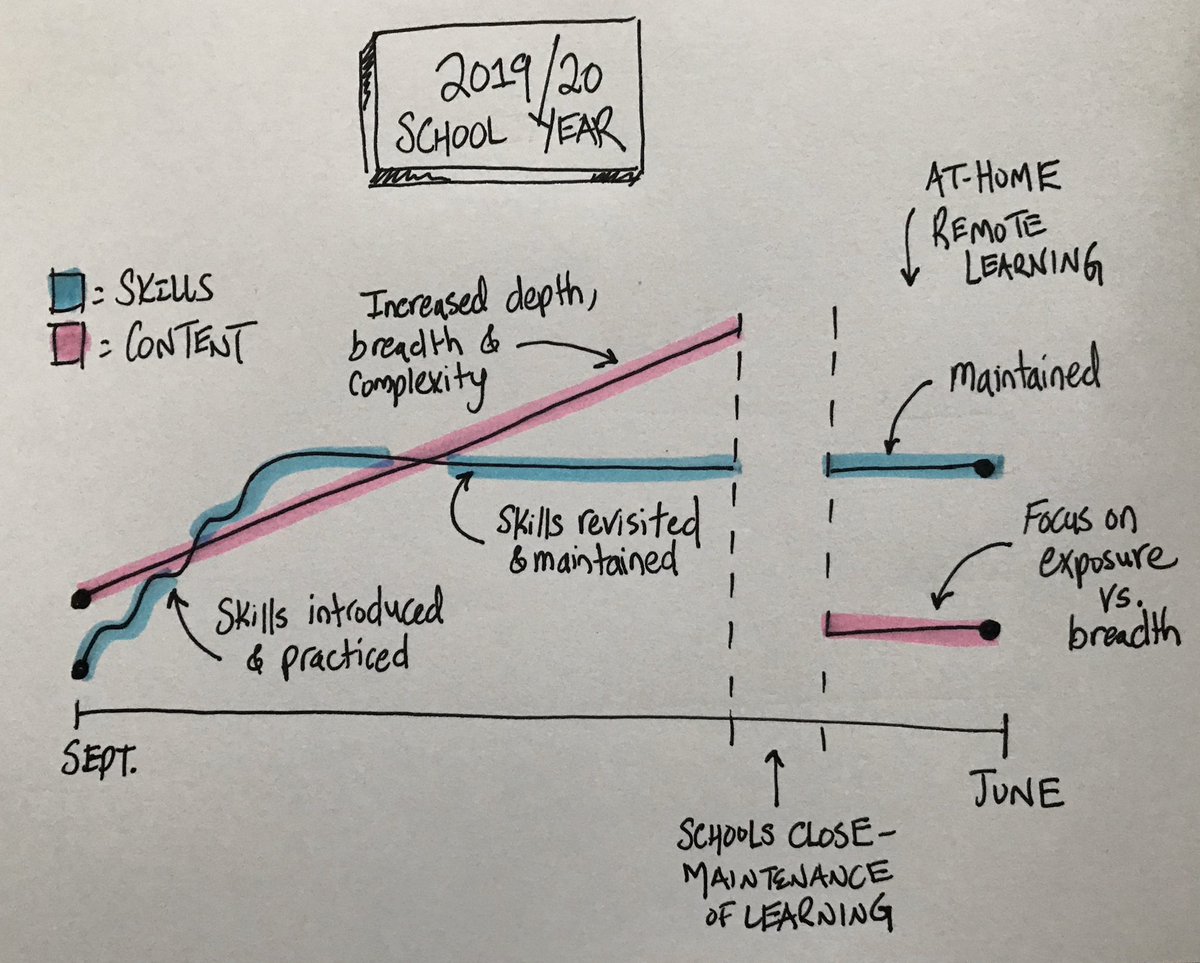 2019/20
SCHOOL YEAR
AT-HOME
REMOTE
LEARNING
= SKILLS
= CONTENT
Increased depth,
breadth &
complexity
maintained
Skills revisited
& maintained
Focus on
exposure
vs.
breadth
Skills introduced
& practiced
SEPT.
JUNE
SCHOOLS CLOSE-
MAINTENANCE
OF LEARNING